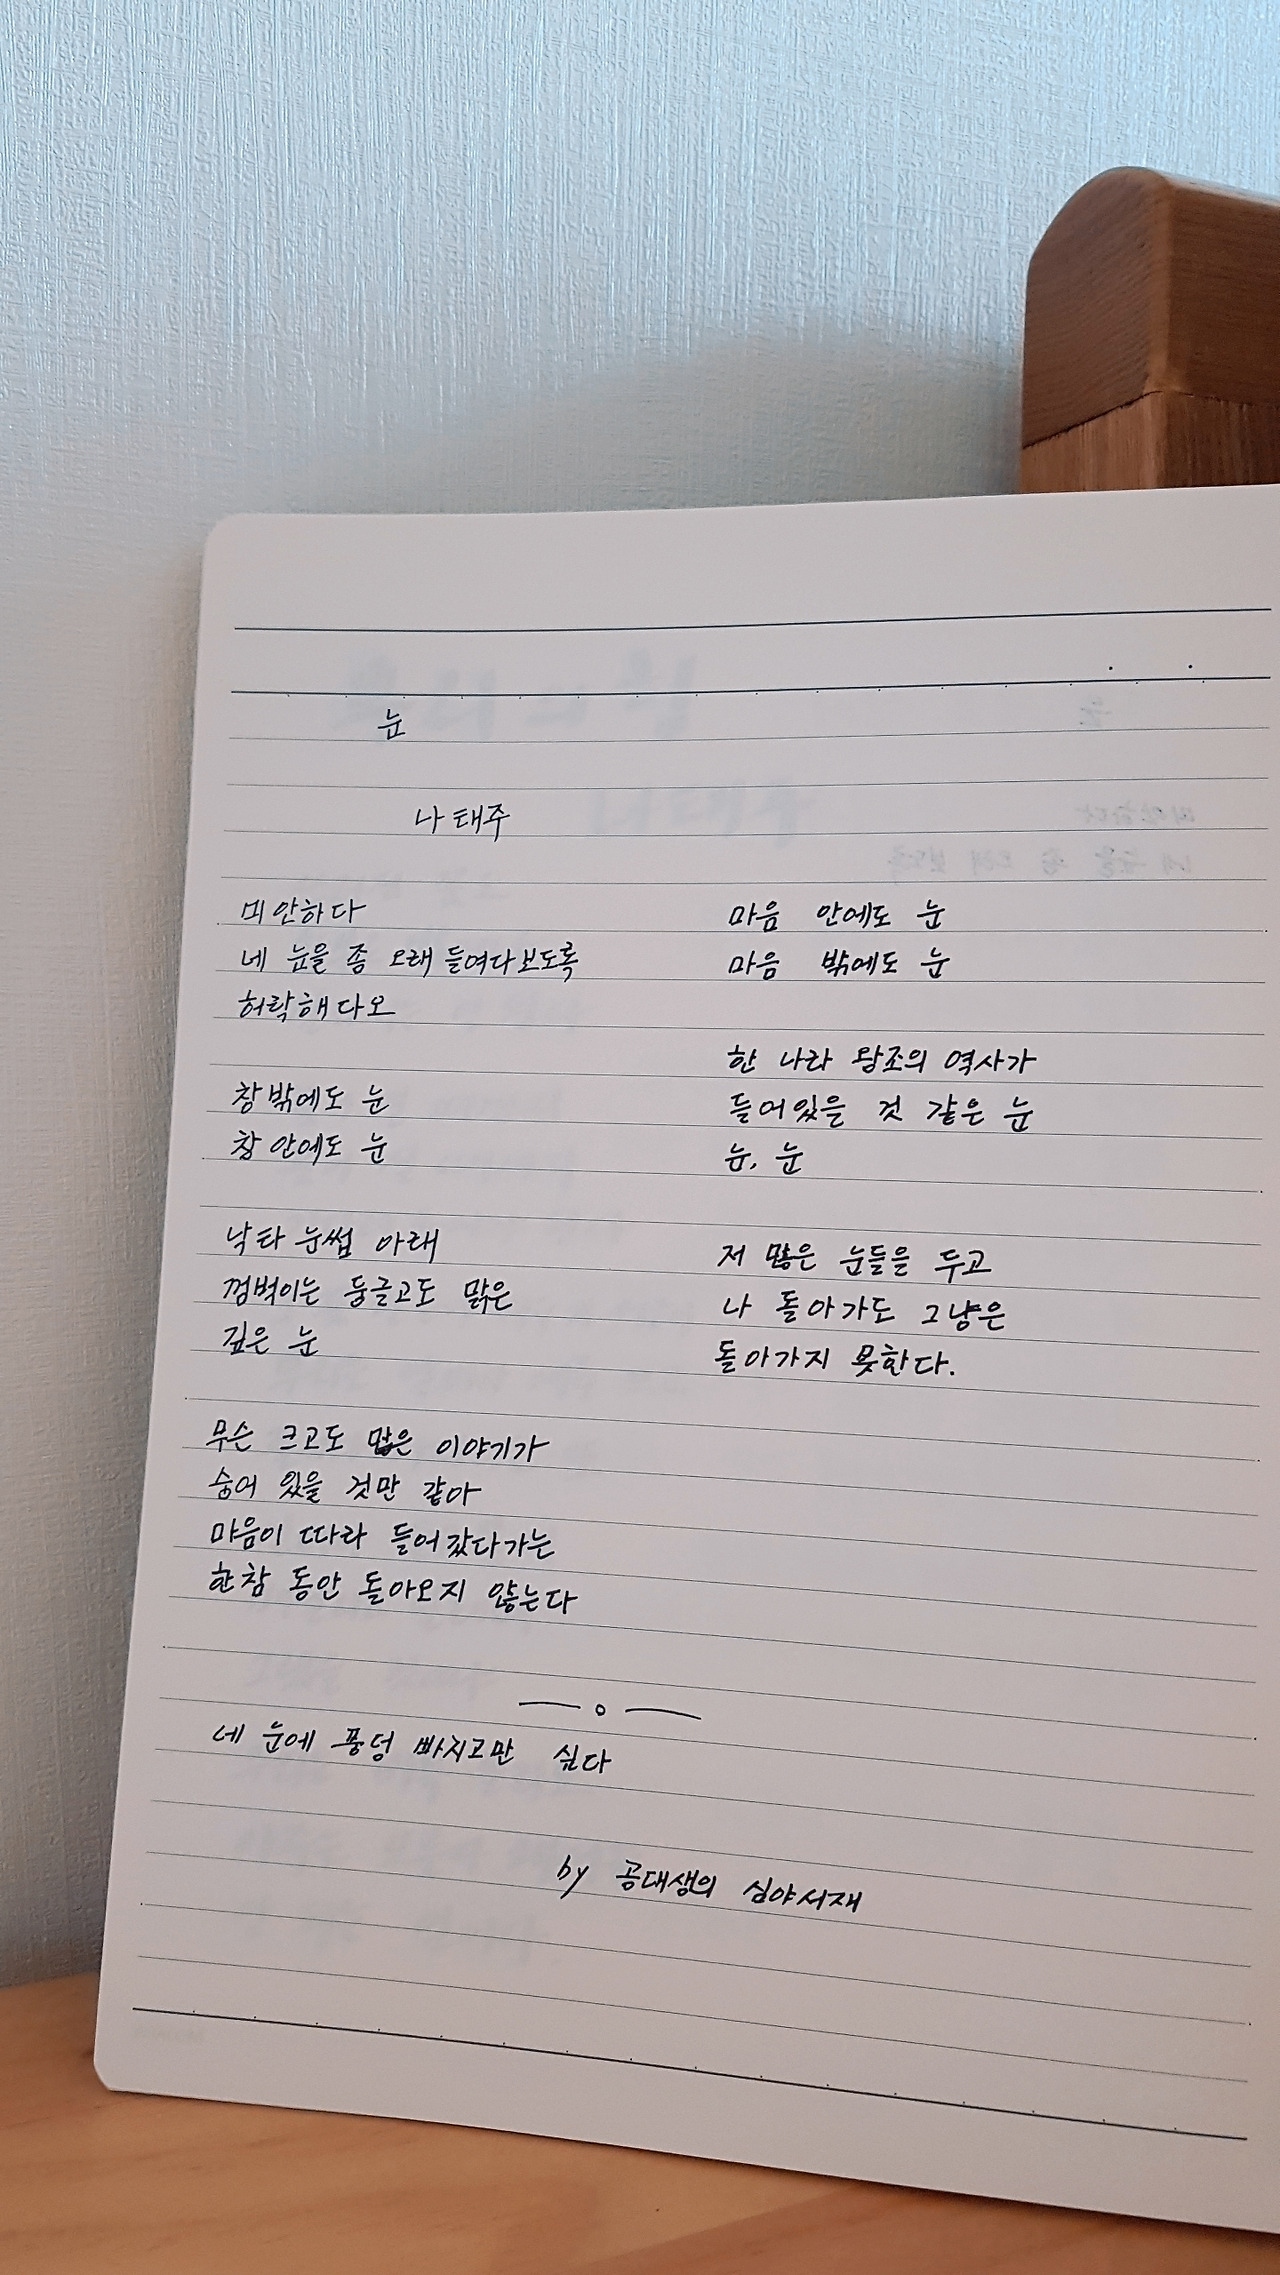 눈
나태주
미안하다
네 눈을 좀 오래 들여다보도록
허락해다오
창밖에도 눈
창 안에도 눈
낙타 눈썹 아래
껌벅이는 둥글고도 맑은
깊은 눈
무슨 크고도 많은 이야기가
숨어 있을 것만 같아
마음이 따라 들어갔다가는
한참 동안 돌아오지 않는다
마음 안에도 눈
마음 밖에도 눈
한 나라 왕조의 역사가
들어있을 것 같은 눈
눈, 눈
저 많은 눈들을 두고
나 돌아가도 그냥은
돌아가지 못한다.
네 눈에 풍덩 빠지고만 싶다
by 공대생의 심야서재